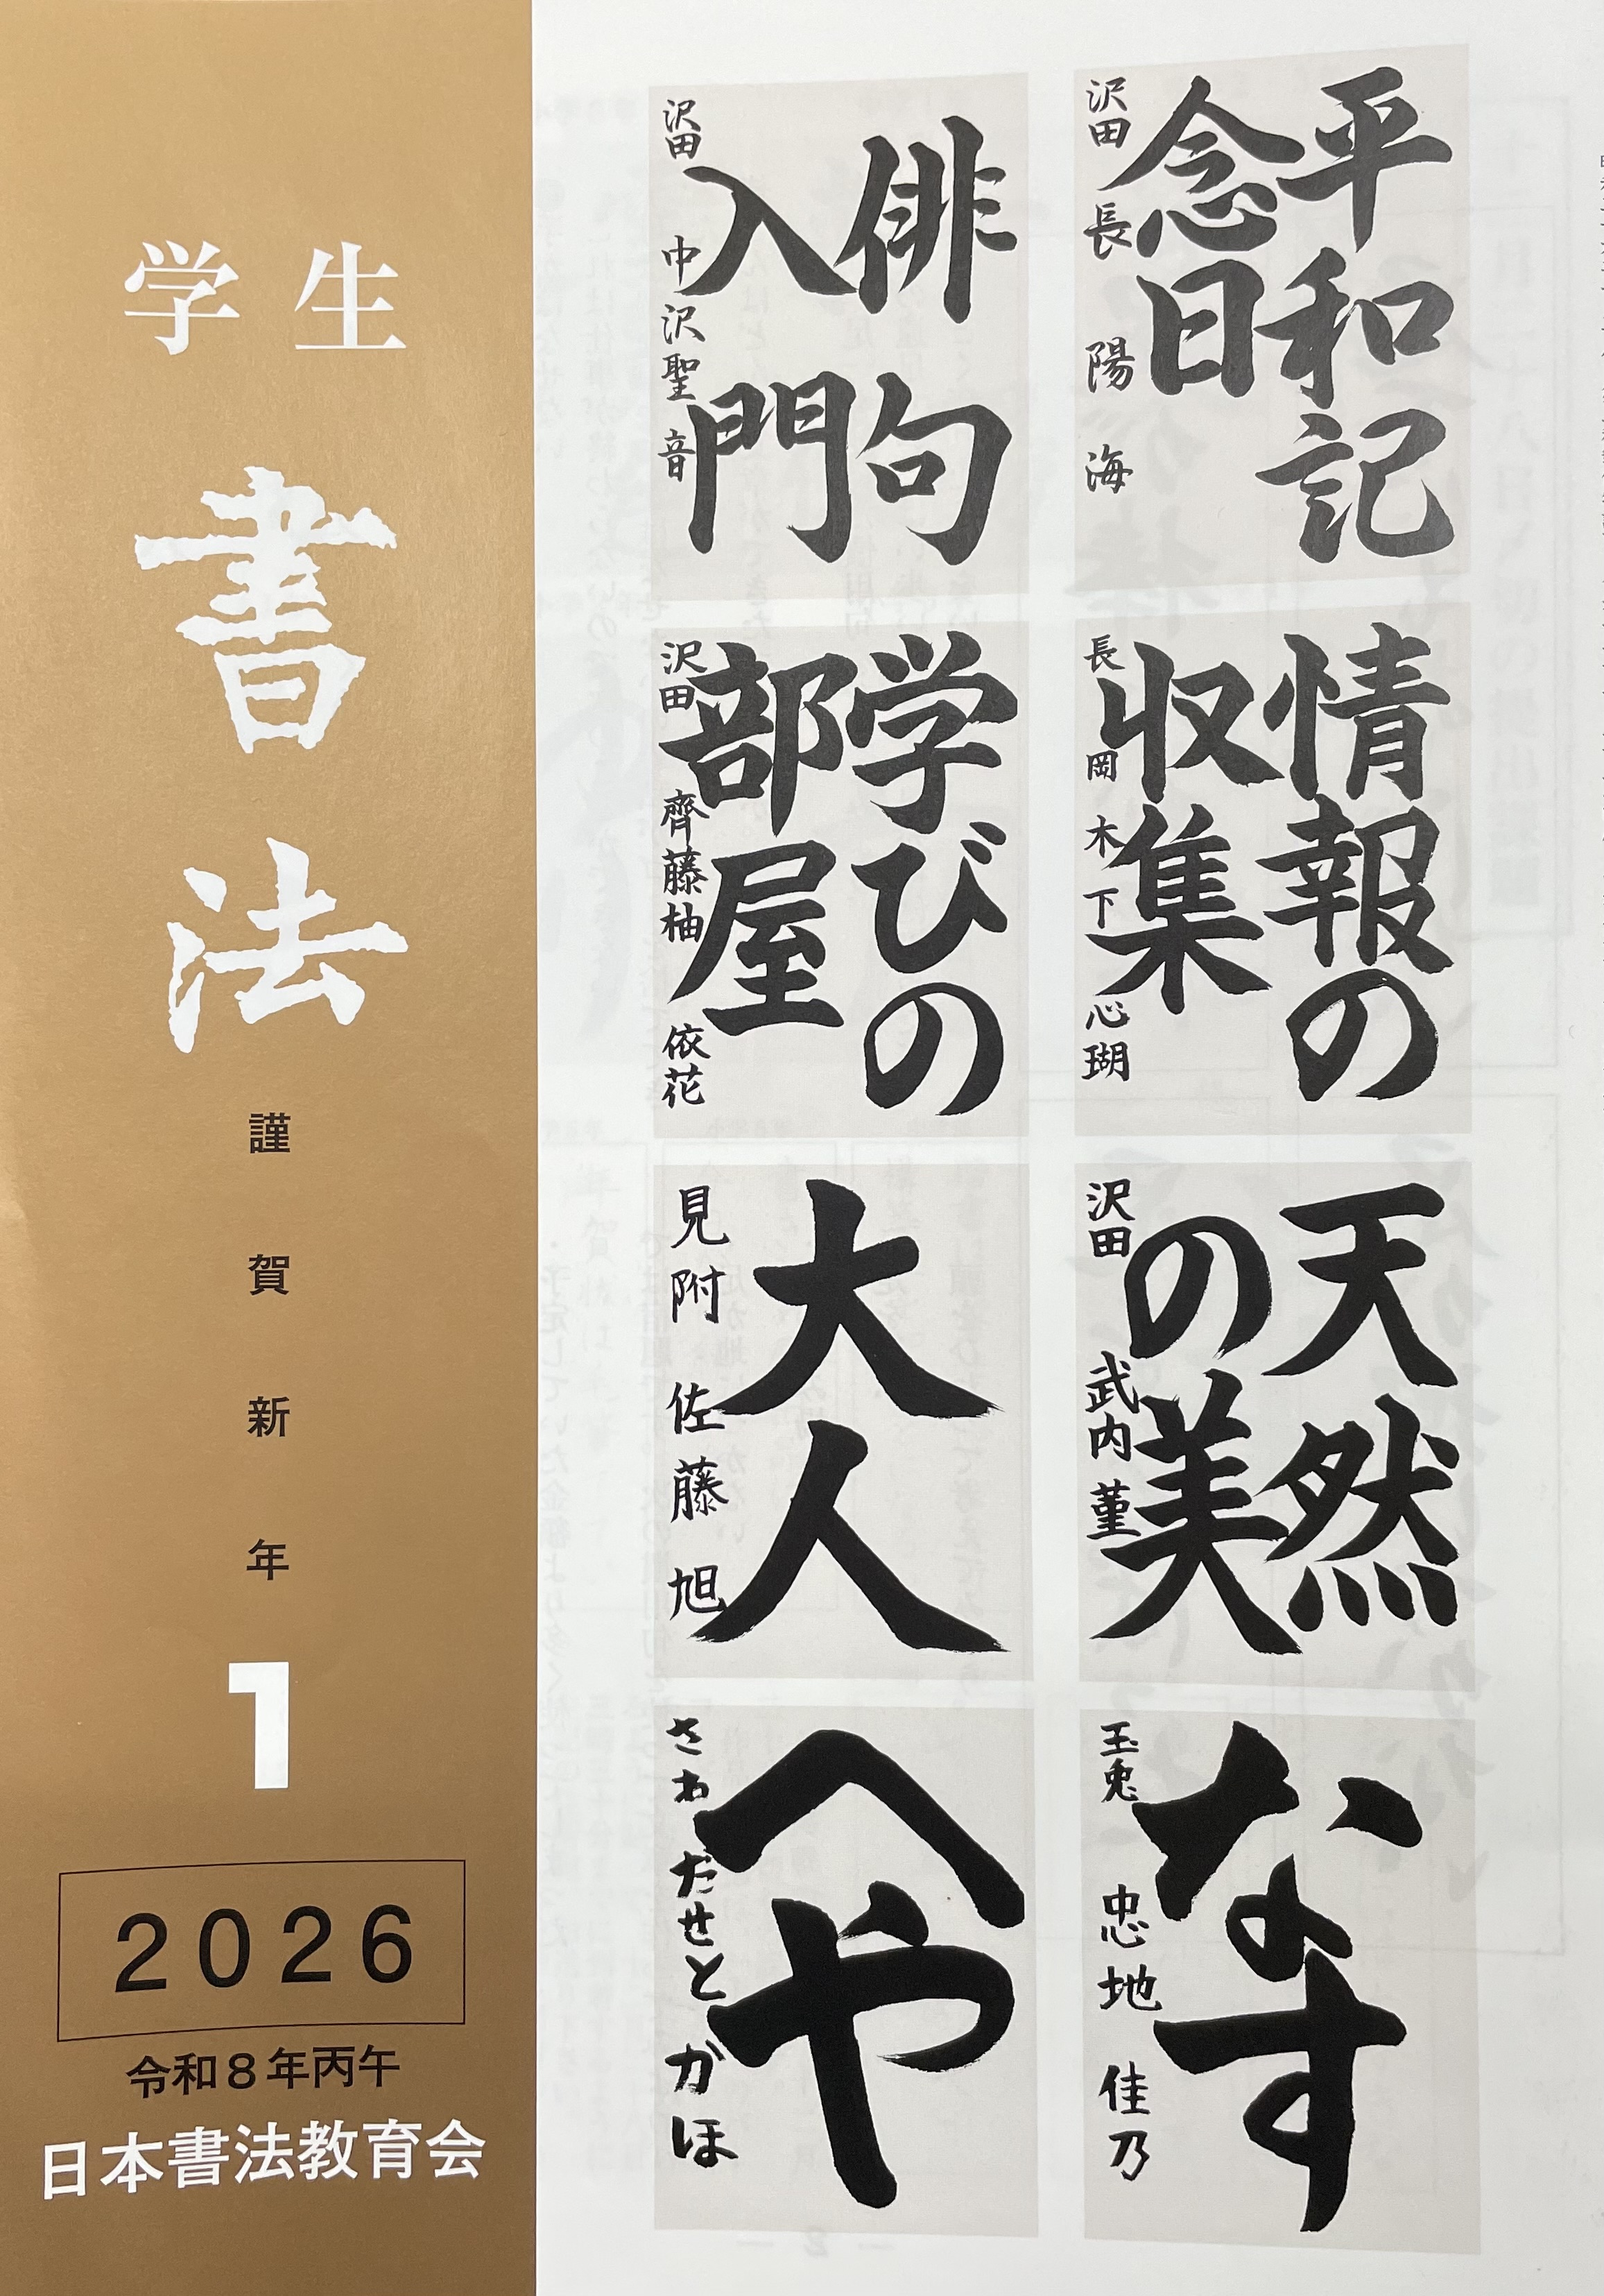 学生
書法
謹賀新年
1
2026
令和8年丙午
日本書法教育会
平和記
念日
沢田 長 陽海
俳句
入門
沢田 中沢聖音
情報の
収集
長岡 木下心瑚
学びの
部屋
沢田 齊藤柚依花
天然
の美
沢田 武内菫
大人
見附 佐藤旭
なす
玉兎 忠地佳乃
へや
さわだ せとかほ